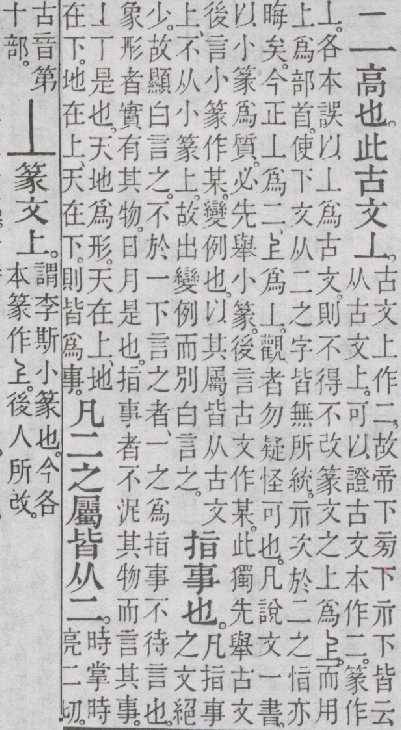 二高也。此古文丄。古文上作二。故帝下㫄下示下皆云
从古文上。可以證古文本作二。篆作
丄。各本誤以丄爲古文。則不得不改篆文之上爲𠄞。而用
上爲部首。使下文从二之字皆無所統。示次於二之恉亦
晦矣。今正丄爲二、𠄞爲丄。觀者勿疑怪可也。凡說文一書。
以小篆爲質。必先舉小篆。後言古文作某。此獨先舉古文
後言小篆作某。變例也。以其屬皆从古文
上、不从小篆上。故出變例而別白言之。
指事也。凡指事
之文絕
少。故顯白言之。不於一下言之者、一之爲指事不待言也。
象形者實有其物。日月是也。指事者不泥其物而言其事。
丄丅是也。天地爲形。天在上、地
在下。地在上、天在下。則皆爲事。
凡二之屬皆从二。時掌時
亮二切。
古音第
十部。
丄篆文上。謂李斯小篆也。今各
本篆作𠄞。後人所改。